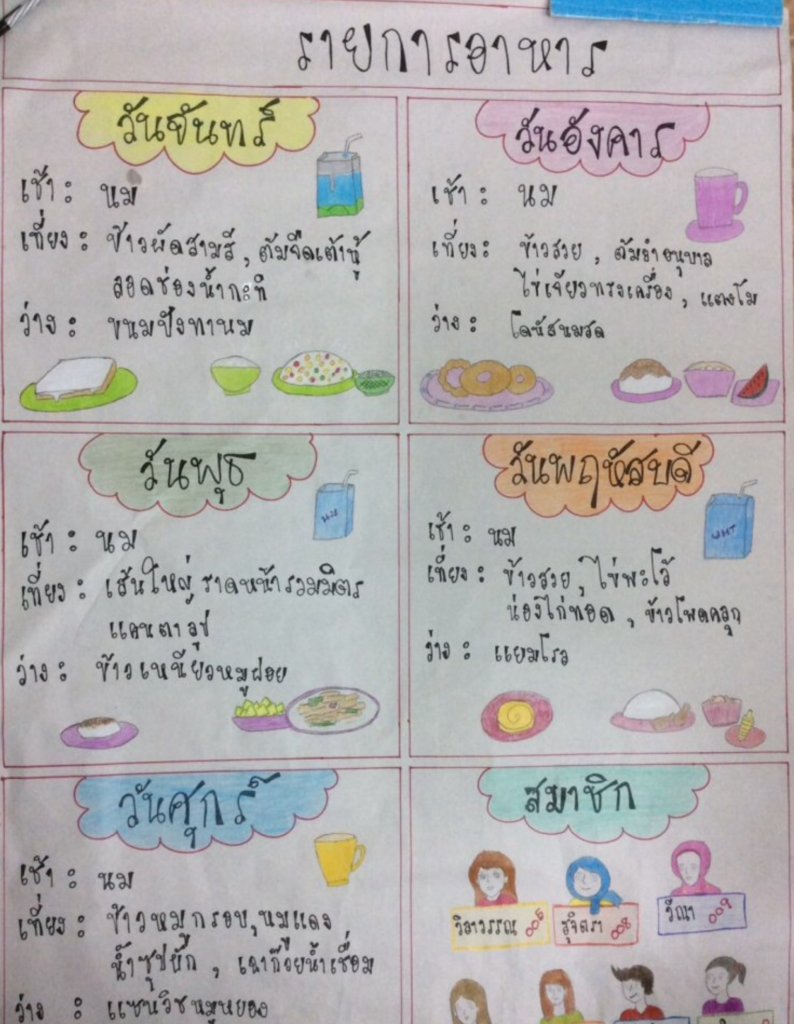 รายการอาหาร
วันจันทร์
เช้า : นม
เที่ยง : ข้าวผัดสามสี , ต้มจืดเต้าหู้
ลอดช่องน้ำกะทิ
ว่าง : ขนมปังทานม
วันอังคาร
เช้า : นม
เที่ยง : ข้าวสวย , ต้มยำอนุบาล
ไข่เจียวทรงเครื่อง , แตงโม
ว่าง : โดนัทนมสด
วันพุธ
เช้า : นม
เที่ยง : เส้นใหญ่ ราดหน้ารวมมิตร
แคนตาลูป
ว่าง : ข้าวเหนียวหมูฝอย
วันพฤหัสบดี
เช้า : นม
เที่ยง : ข้าวสวย , ไข่พะโล้
น่องไก่ทอด , ข้าวโพดคลุก
ว่าง : แยมโรล
วันศุกร์
เช้า : นม
เที่ยง : ข้าวหมูกรอบ,หมูแดง
น้ำซุปผัก , เฉาก๊วยน้ำเชื่อม
ว่าง : แซนวิชหมูหยอง
สมาชิก
วิลาวรรณ 006
สุจิตรา 008
วีณา 009